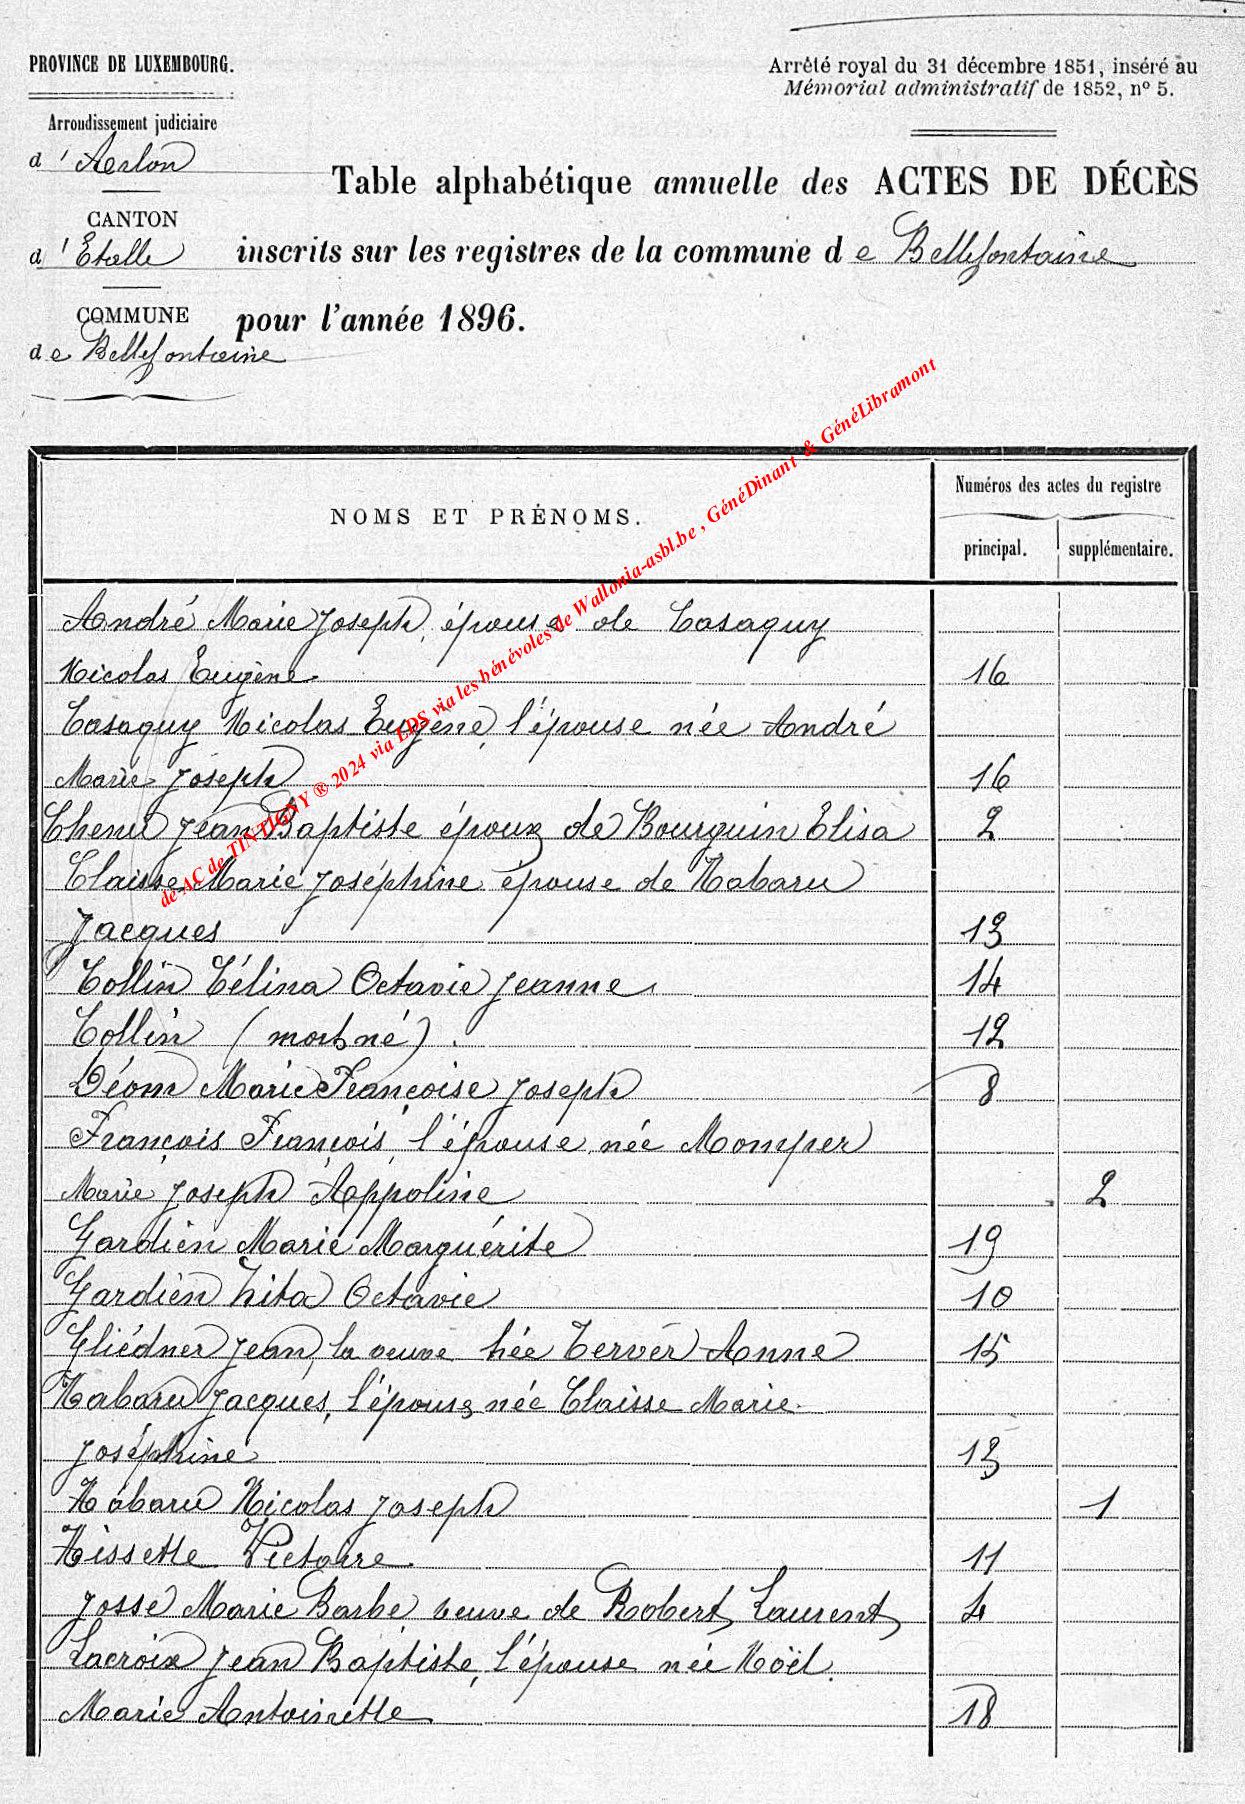 PROVINCE DE LUXEMBOURG.
Arrêté royal du 31 décembre 1851, inséré au
Mémorial administratif de 1852, nº 5.
Arrondissement judiciaire
d'Aerlon
Table alphabétique annuelle des ACTES DE DÉCÈS
CANTON
d'Etalle
inscrits sur les registres de la commune de Bellefontaine
COMMUNE
de Bellefontaine
pour l'année 1896.
NOMS ET PRÉNOMS.
Numéros des actes du registre
principal.
supplémentaire.
André Marie Joseph, épouse de Casaquy
Nicolas Eugène 16
Casaquy Nicolas Eugène, l'épouse née André
Marie Joseph 16
Chenu Jean Baptiste époux de Bourguin Elisa 2
Claisse Marie Joséphine épouse de Habaru
Jacques 13
Collin Célina Octavie Jeanne 14
Collin (mort né). 12
Déom Marie Françoise Joseph 8
François François, l'épouse née Momper
Marie Joseph Appoline 2
Gardien Marie Marguérite 19
Gardien Zita Octavie 10
Gliédner Jean, la veuve née Cerver Anne 15
Habaru Jacques, l'épouse née Claisse Marie
Joséphine 13
Habaru Nicolas Joseph 1
Hissette Victoire 11
Josse Marie Barbe veuve de Robert Laurent 4
Lacroix Jean Baptiste, l'épouse née Noël
Marie Antoinette 18
de AC de TINTIGNY ® 2024 via LDS via les bénévoles de Wallonia-asbl.be , GénéDinant & GénéLibramont